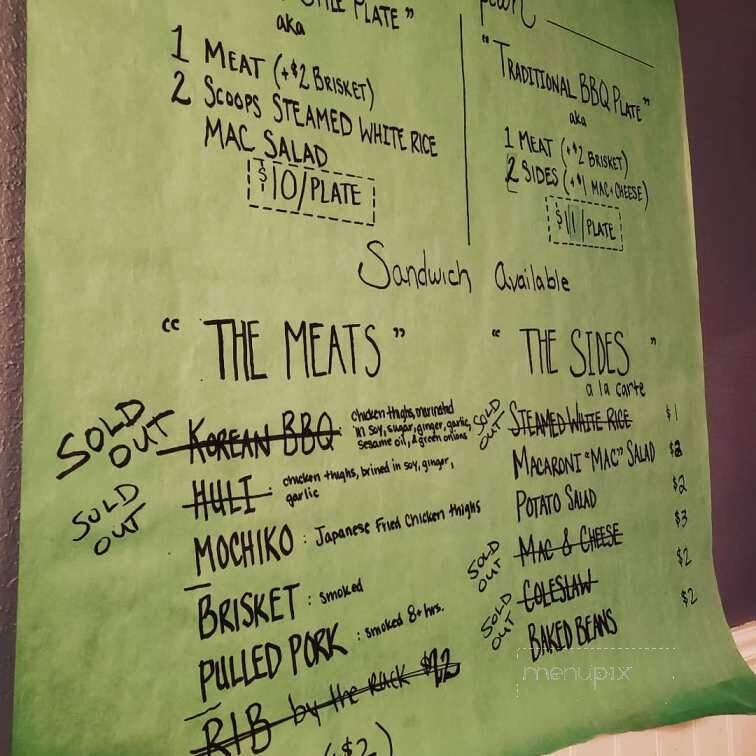 PLATE"
aka
1 MEAT (+$2 BRISKET)
2 SCOOPS STEAMED WHITE RICE
MAC SALAD
$10/PLATE
"TRADITIONAL BBQ PLATE"
aka
1 MEAT (+$2 BRISKET)
2 SIDES (+$1 MAC+CHEESE)
$11/PLATE
Sandwich Available
"THE MEATS"
SOLD OUT KOREAN BBQ: chicken thighs, marinated
in soy, sugar, ginger, garlic,
sesame oil, & green onions
SOLD OUT HULI: chicken thighs, brined in soy, ginger,
garlic
MOCHIKO: Japanese Fried Chicken thighs
BRISKET: smoked
PULLED PORK: smoked 8+ hrs.
RIB by the Rack $22
(+$2)
"THE SIDES"
a la carte
SOLD OUT STEAMED WHITE RICE $1
MACARONI "MAC" SALAD $2
POTATO SALAD $2
SOLD OUT MAC & CHEESE $3
SOLD OUT COLESLAW $2
BAKED BEANS $2
menupix